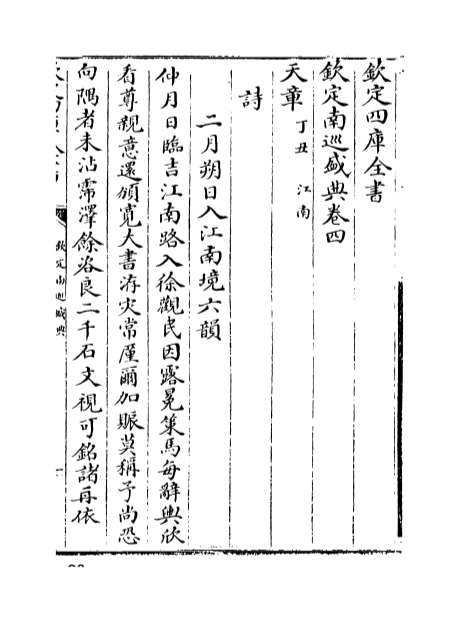 欽定四庫全書
欽定南巡盛典卷四
天章 丁丑 江南
詩
二月朔日入江南境六韻
仲月日臨吉江南路入徐觀民因露冕策馬每辭輿欣
看尊親意還頒寬大書洊灾常廑爾加賑莫稱予尚恐
向隅者未沾霈澤餘咨良二千石文視可銘諸再依
欽定南巡盛典